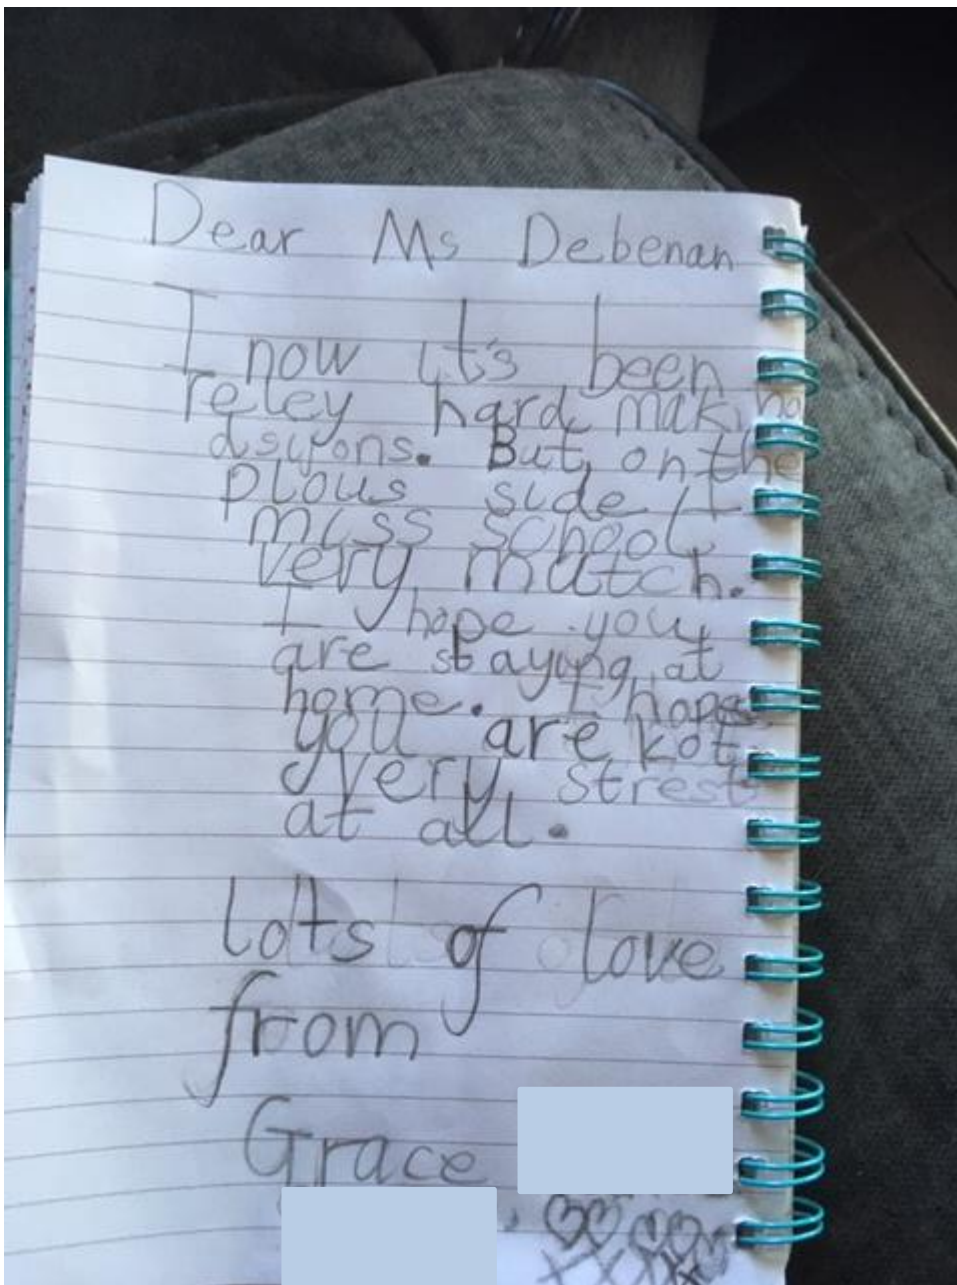 Dear Ms Debenan
I now it's been
reley hard making
dsijons. But on the
plous side I
miss school
very mutch.
I hope you
are staying at
home. I hope
you are kot
very strest
at all.
lots of love
from
Grace
xxxx